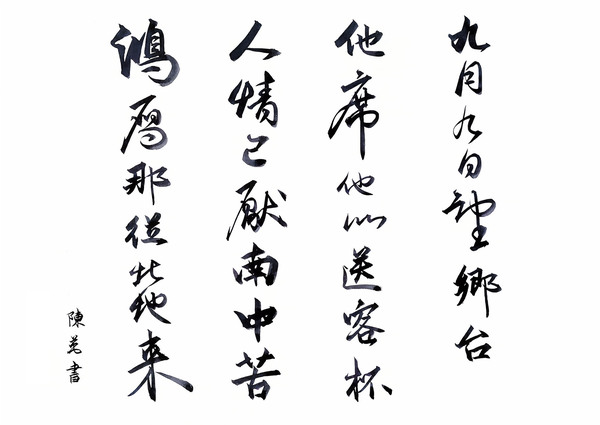 九月九日望鄉台
他席他鄉送客杯
人情已厭南中苦
鴻雁那從北地来
陳書